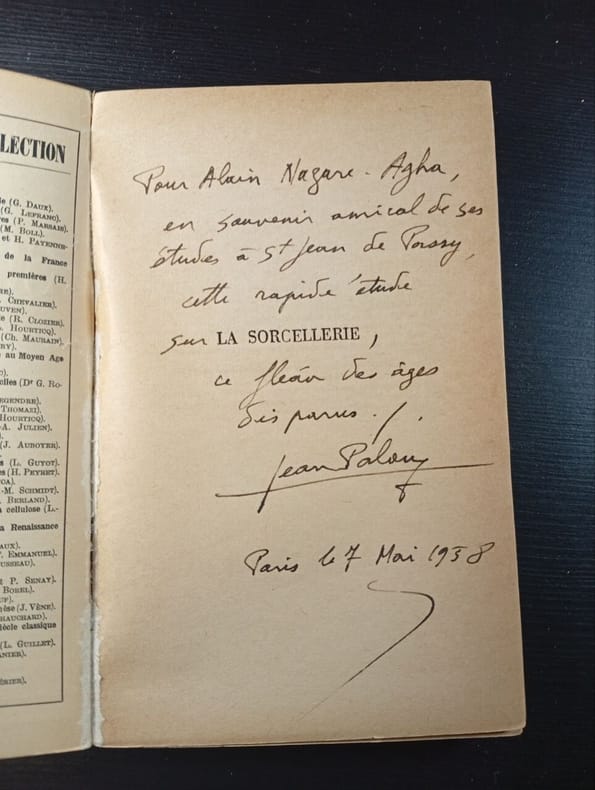 LECTION
e (G. DAUX).
(G. LEFRANC).
res (P. MARSAIS).
(M. BOLL).
et H. PAYENNE-
de la France
premières (H.
RE).
CHEVALIER).
UVEN).
le (R. CLOZIER).
HOURTICQ).
(Ch. MAURAIN).
RY).
au Moyen Age
C).
elles (Dr G. RO-
EGENDRE).
THOMAZI).
HOURTICQ).
-A. JULIEN).
(J. AUBOYER).
s (L. GUYOT).
es (H. PEYRET).
OA).
-M. SCHMIDT).
BERLAND).
a cellulose (L.-
a Renaissance
AUX).
. EMMANUEL).
USSEAU).
t P. SENAY).
BOREL).
UF).
hèse (J. VÈNE).
HAUCHARD).
iècle classique
(L. GUILLET).
ANIER).
ÉRIER).
Pour Alain Nagare-Agha,
en souvenir amical de ses
études à St Jean de Passy,
cette rapide étude
sur LA SORCELLERIE,
ce fléau des âges
disparus./.
Jean Palou
Paris le 7 Mai 1958